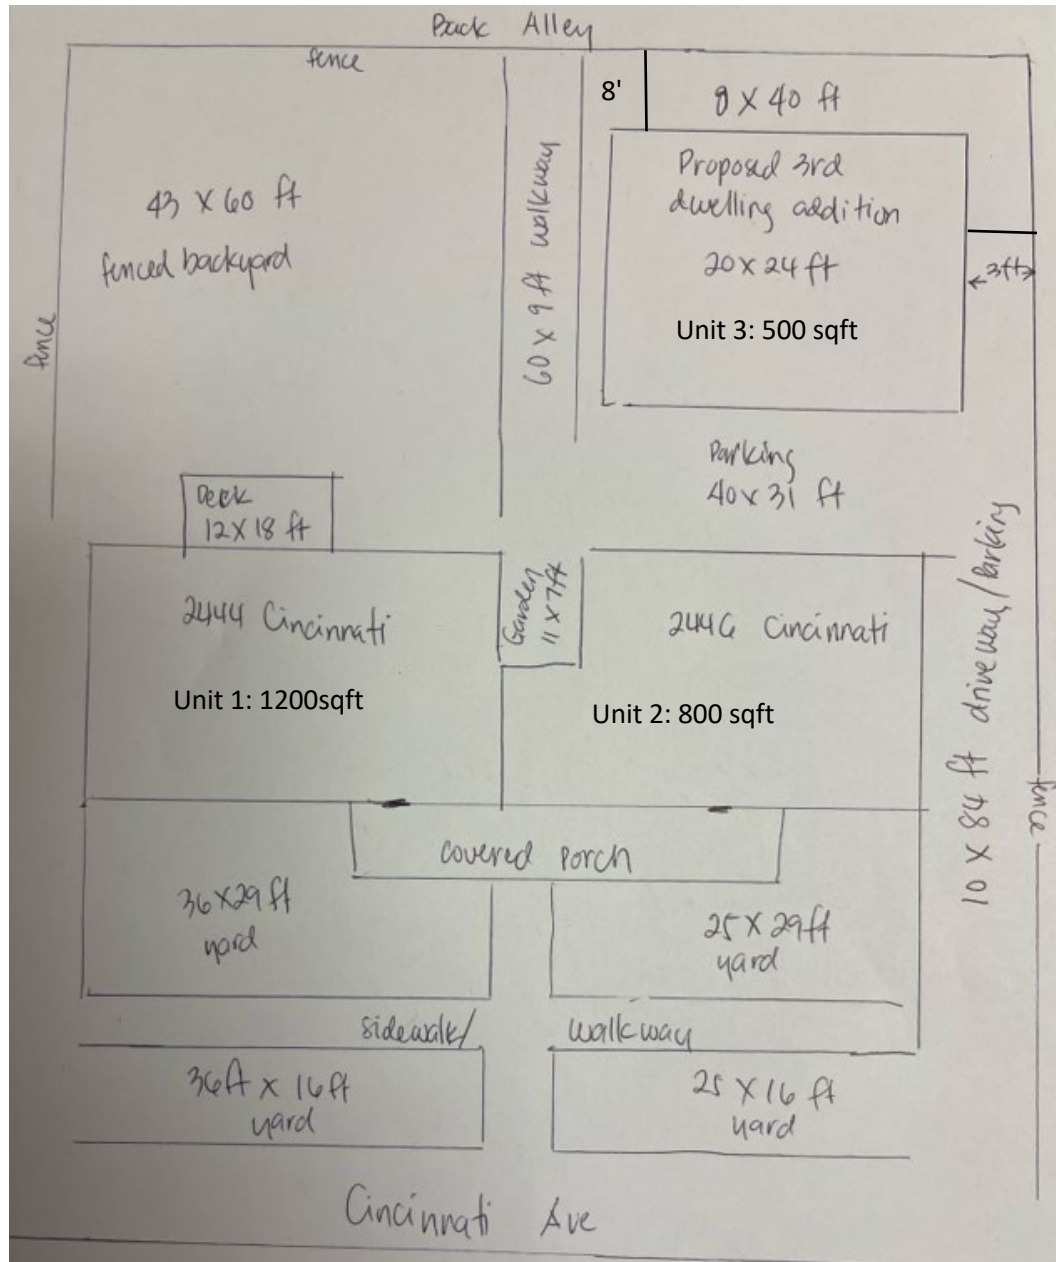 Back Alley
fence
8'
8 x 40 ft
43 x 60 ft
fenced backyard
60 x 9 ft walkway
Proposed 3rd
dwelling addition
20 x 24 ft
Unit 3: 500 sqft
3ft
fence
Parking
40 x 31 ft
Deck
12 x 18 ft
2444 Cincinnati
Unit 1: 1200sqft
Garden
11 x 7ft
2446 Cincinnati
Unit 2: 800 sqft
10 x 84 ft driveway/Parking
fence
covered porch
36 x 29 ft
yard
25 x 29ft
yard
sidewalk/ walkway
36ft x 16ft
yard
25 x 16 ft
yard
Cincinnati Ave